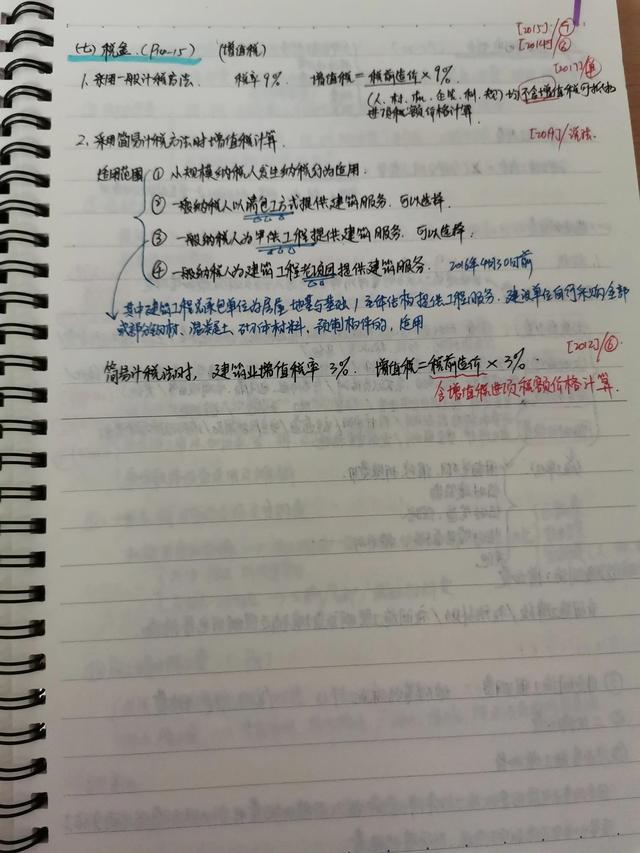 [2015]/④
[2014]/②
(七) 税金. (P14-15) (增值税)
[2017]/单
1. 采用一般计税方法. 税率9%. 增值税=税前造价×9%.
(人、材、机、企管、利、规) 均不含增值税可抵扣
进项税额价格计算.
2. 采用简易计税方法时增值税计算. [2019]/说法.
适用范围 ① 小规模纳税人发生纳税行为适用.
② 一般纳税人以清包工方式提供建筑服务. 可以选择.
③ 一般纳税人为甲供工程提供建筑服务. 可以选择.
④ 一般纳税人为建筑工程老项目提供建筑服务. 2016年4月30日前
其中建筑工程总承包单位为房屋 地基与基础/主体结构提供工程服务. 建设单位自行采购全部
或部分钢材、混凝土、砌体材料、预制构件的, 适用
[2012]/⑥
简易计税法时, 建筑业增值税率3%. 增值税=税前造价×3%.
含增值税进项税额价格计算.